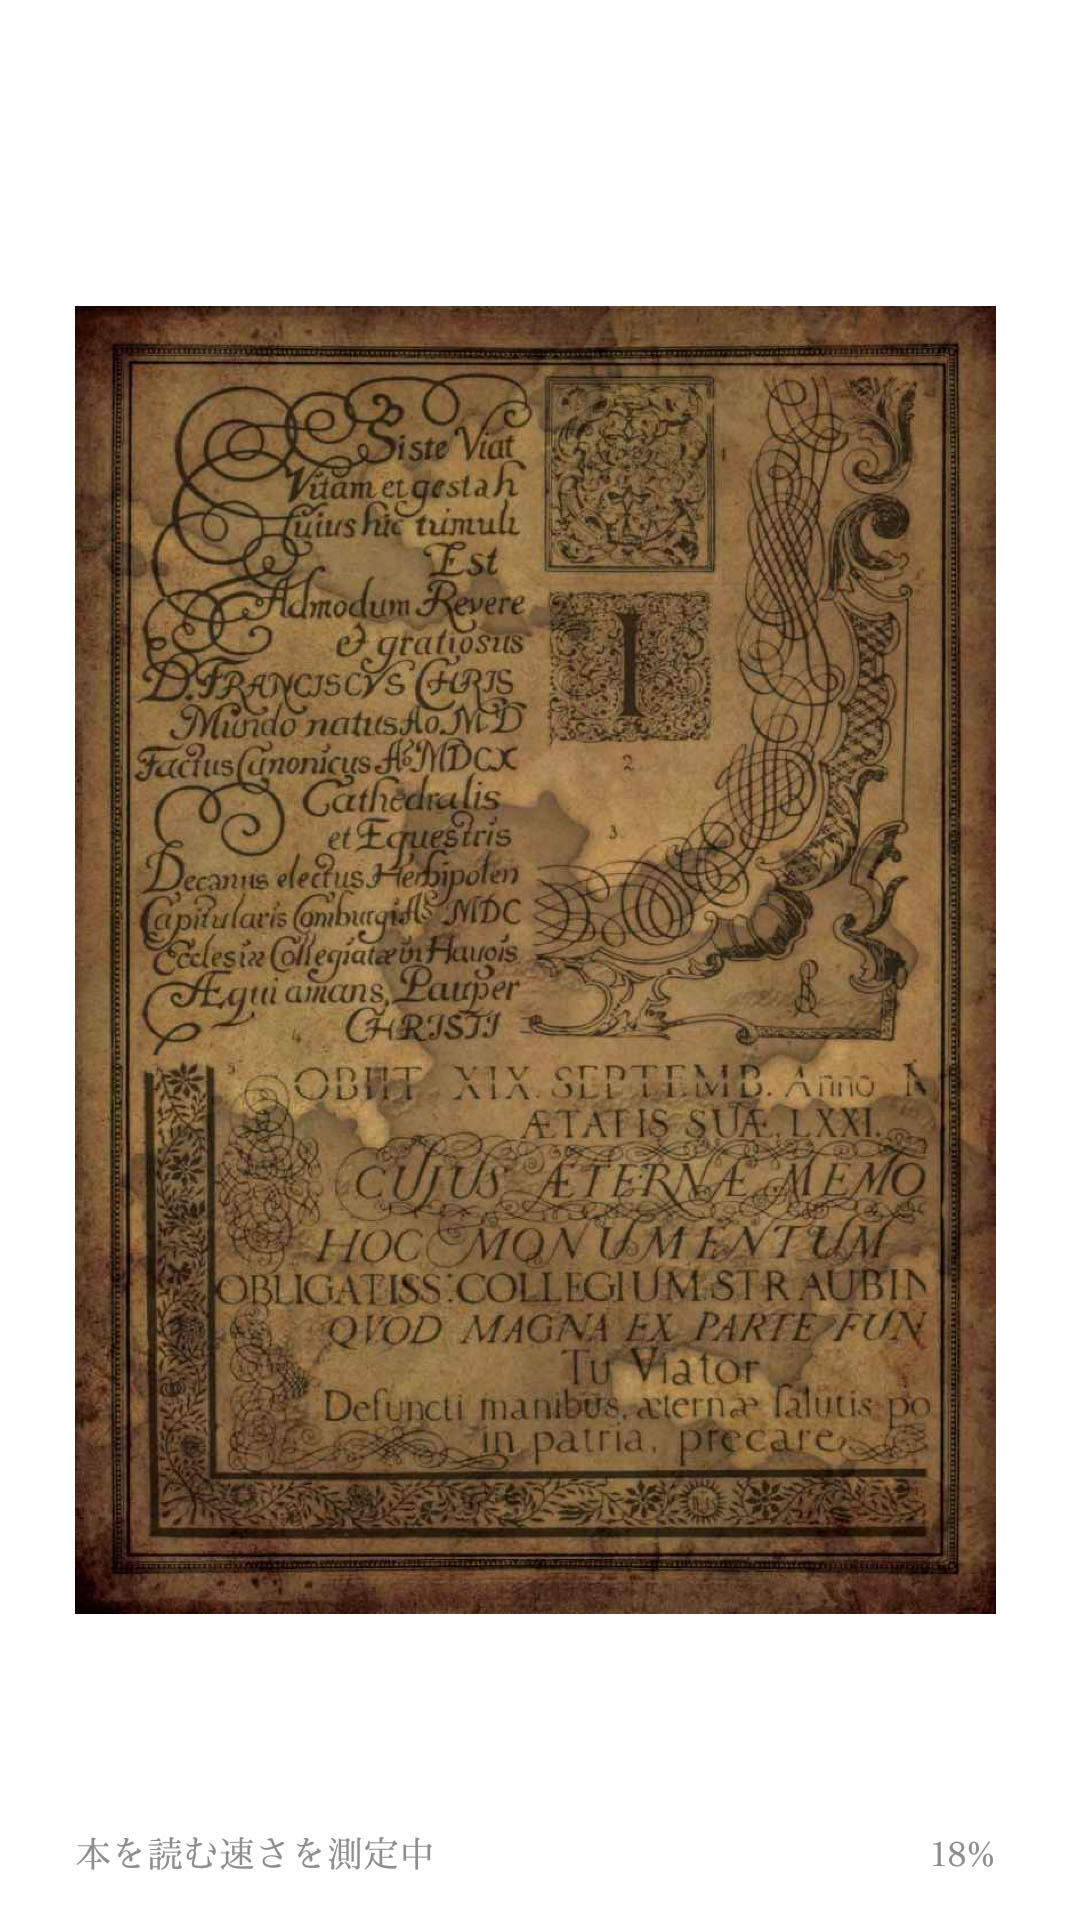 Siste Viat
Vitam et gesta h
cuius hic tumuli
Est
Admodum Revere
et gratiosus
D. FRANCISCVS CHRIS
Mundo natus Ao. MD
Factus Canonicus Ao MDCX
Cathedralis
et Equestris
Decanus electus Herbipolen
Capitularis Comburgi Ao MDC
Ecclesiæ Collegiatæ in Hauois
Æqui amans, Pauper
CHRISTI
1
I
2.
3.
OBIIT XIX. SEPTEMB. Anno
ÆTATIS SUÆ, LXXI.
CUJUS ÆTERNÆ MEMO
HOC MONUMENTUM
OBLIGATISS: COLLEGIUM STRAUBIN
QVOD MAGNA EX PARTE FUN
Tu Viator
Defuncti manibus, æternæ salutis po
in patria, precare
本を読む速さを測定中
18%